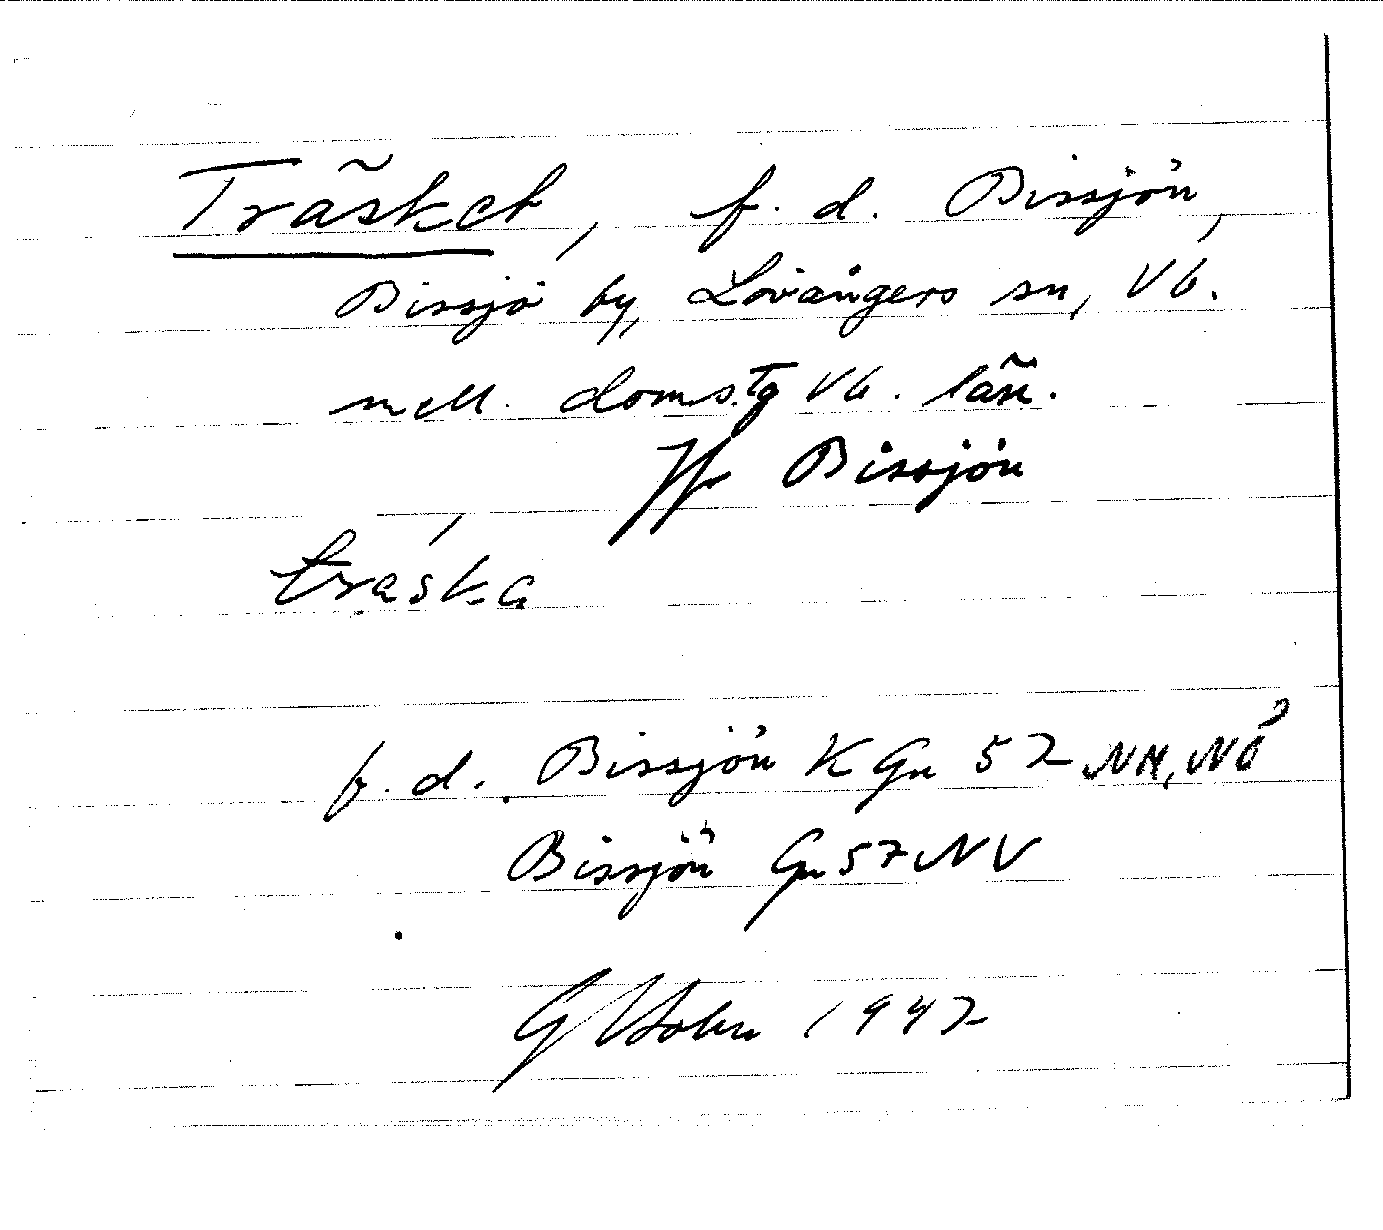 Träsket, f. d. Bissjön,
Bissjö by, Lövångers sn, Vb.
mell. domstg Vb. län.
Jfr Bissjön
träska
f. d. Bissjön K Gn 52 NM, NÖ
Bissjön Gn 57 NV
1942